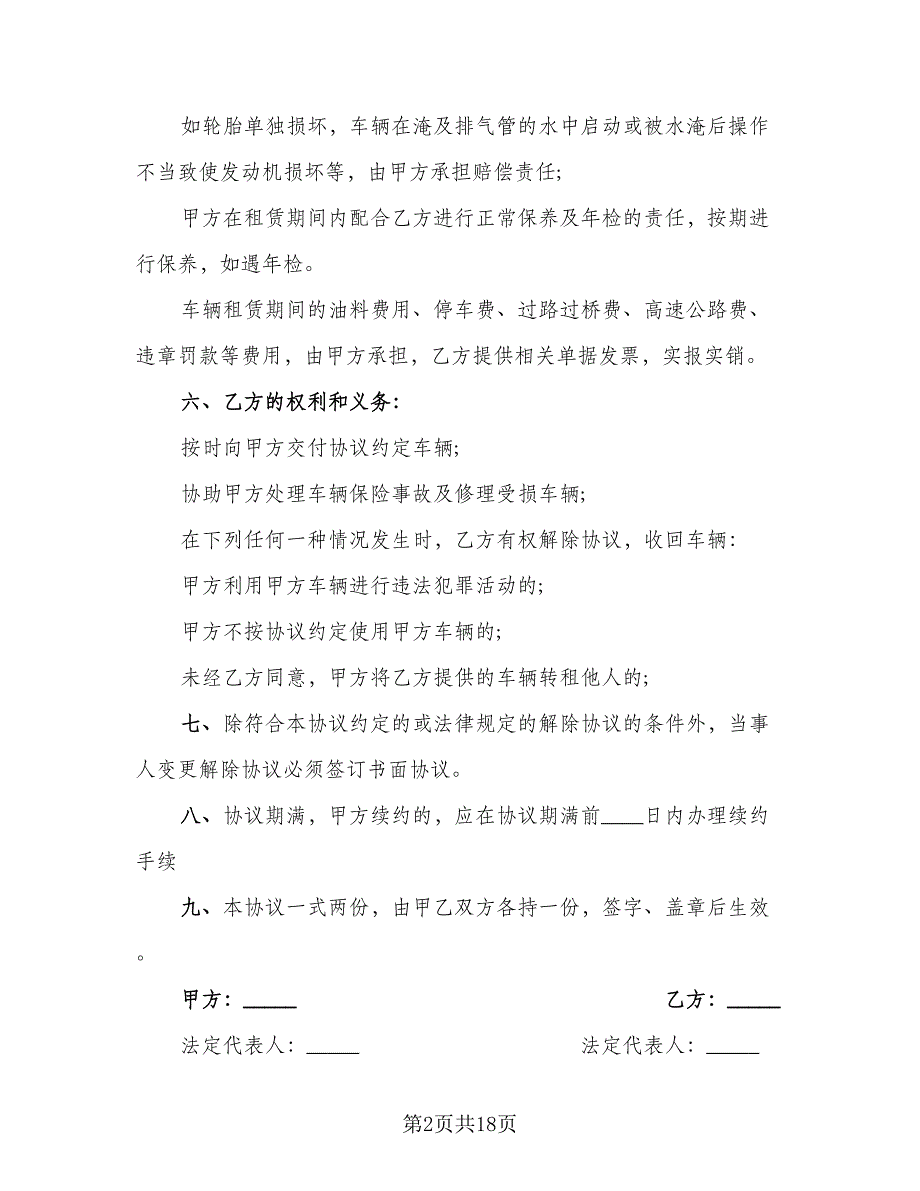 如轮胎单独损坏，车辆在淹及排气管的水中启动或被水淹后操作
不当致使发动机损坏等，由甲方承担赔偿责任;
甲方在租赁期间内配合乙方进行正常保养及年检的责任，按期进
行保养，如遇年检。
车辆租赁期间的油料费用、停车费、过路过桥费、高速公路费、
违章罚款等费用，由甲方承担，乙方提供相关单据发票，实报实销。
六、乙方的权利和义务：
按时向甲方交付协议约定车辆;
协助甲方处理车辆保险事故及修理受损车辆;
在下列任何一种情况发生时，乙方有权解除协议，收回车辆：
甲方利用甲方车辆进行违法犯罪活动的;
甲方不按协议约定使用甲方车辆的;
未经乙方同意，甲方将乙方提供的车辆转租他人的;
七、除符合本协议约定的或法律规定的解除协议的条件外，当事
人变更解除协议必须签订书面协议。
八、协议期满，甲方续约的，应在协议期满前____日内办理续约
手续
九、本协议一式两份，由甲乙双方各持一份，签字、盖章后生效
。
甲方：_____ 乙方：_____
法定代表人：_____ 法定代表人：_____
第2页共18页